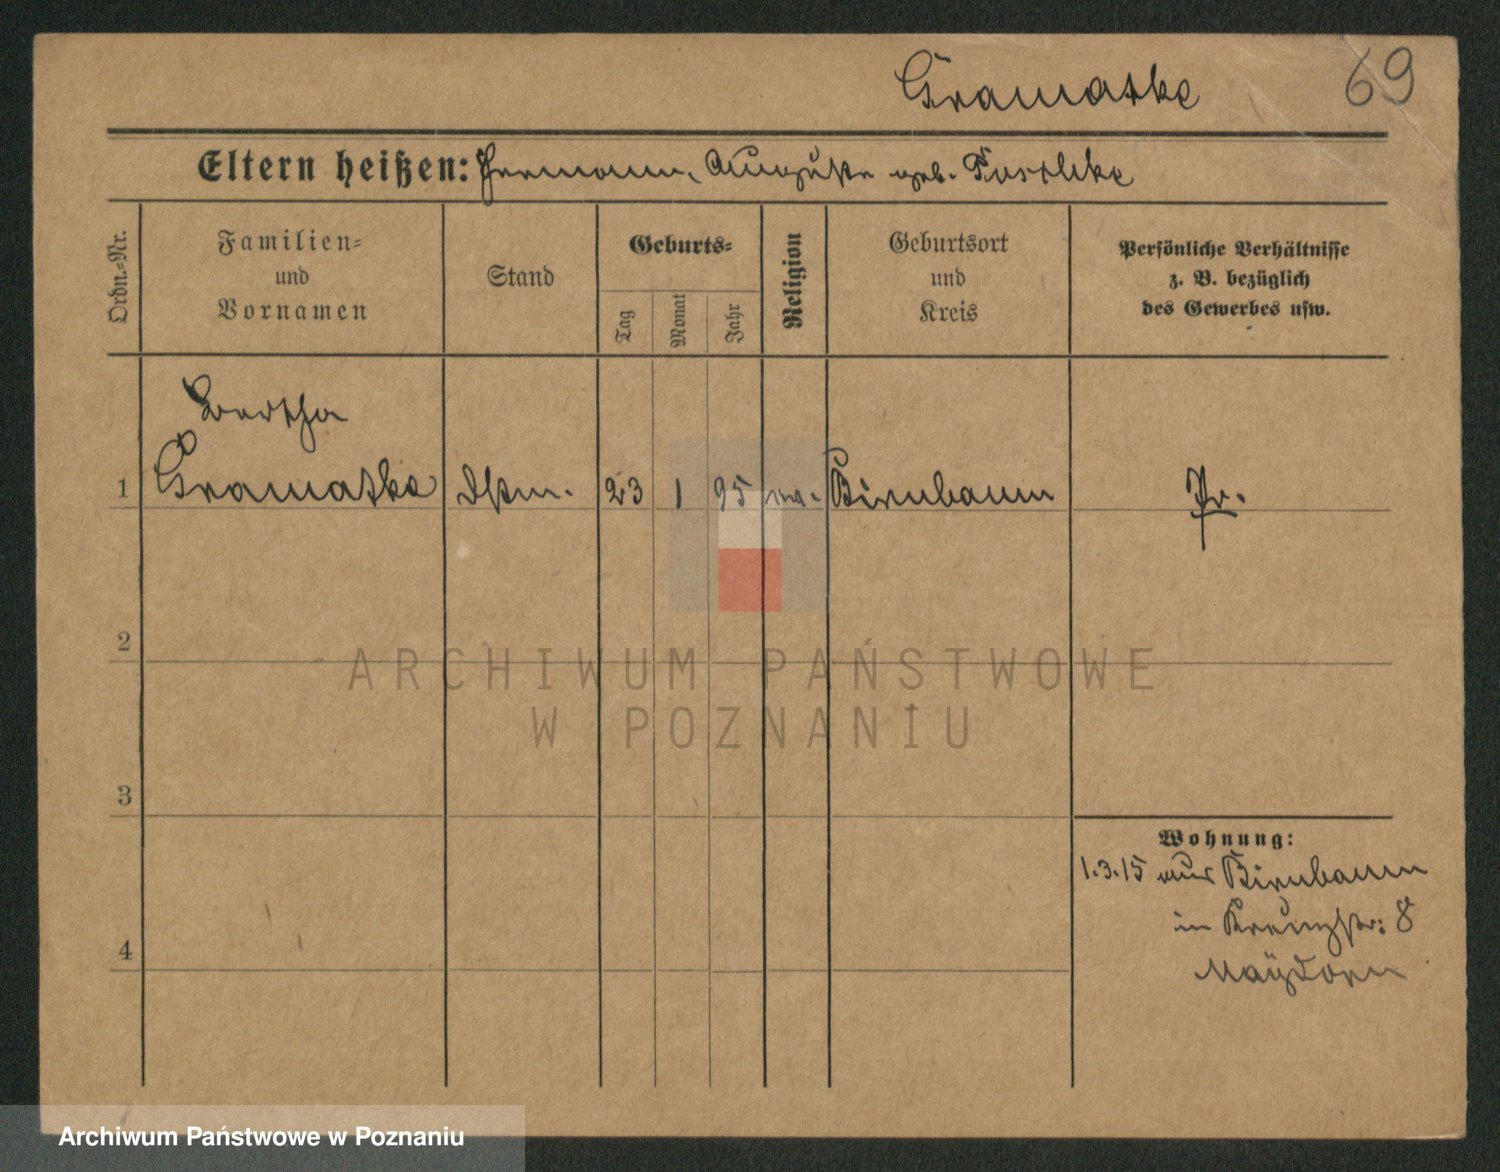 Gramatke 69
Eltern heißen: Hermann, Auguste geb. Paschke
Ordn.=Nr.
Familien=
und
Vornamen
Stand
Geburts=
Tag
Monat
Jahr
Religion
Geburtsort
und
Kreis
Persönliche Verhältnisse
z. B. bezüglich
des Gewerbes usw.
Bertha
1 Gramatke Dstm. 23 1 95 ev. Birnbaum Pr.
2
3
4
Wohnung:
1.3.15 aus Birnbaum
in Kreuzstr: 8
Maÿdorn
ARCHIWUM PAŃSTWOWE
W POZNANIU
Archiwum Państwowe w Poznaniu